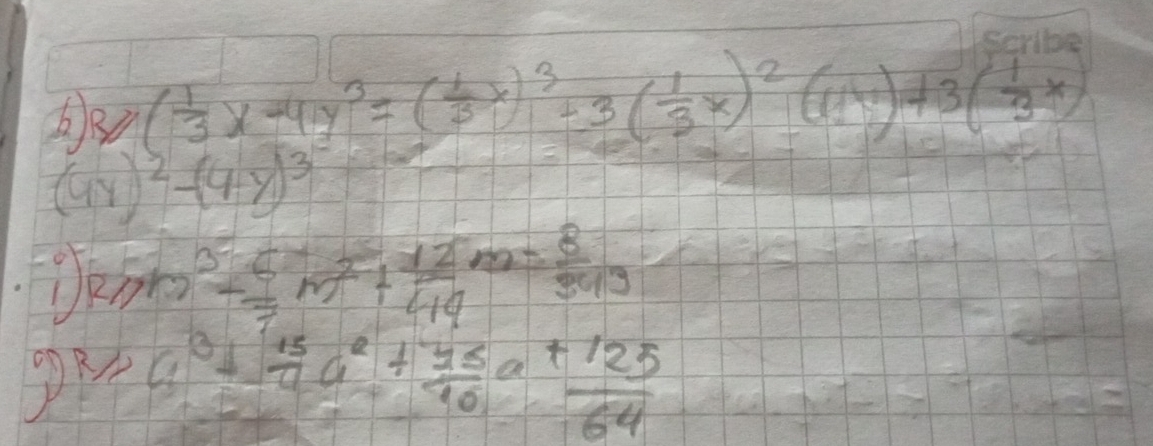 Scribe
b) R// (1/3 x - 4y)^3 = (1/3 x)^3 - 3 (1/3 x)^2 (4y) + 3 (1/3 x)
(4y)^2 - (4y)^3
i) R// m^3 - 6/7 m^2 + 12/49 m - 8/343
j) R// a^3 + 15/4 a^2 + 75/ a + 125/64